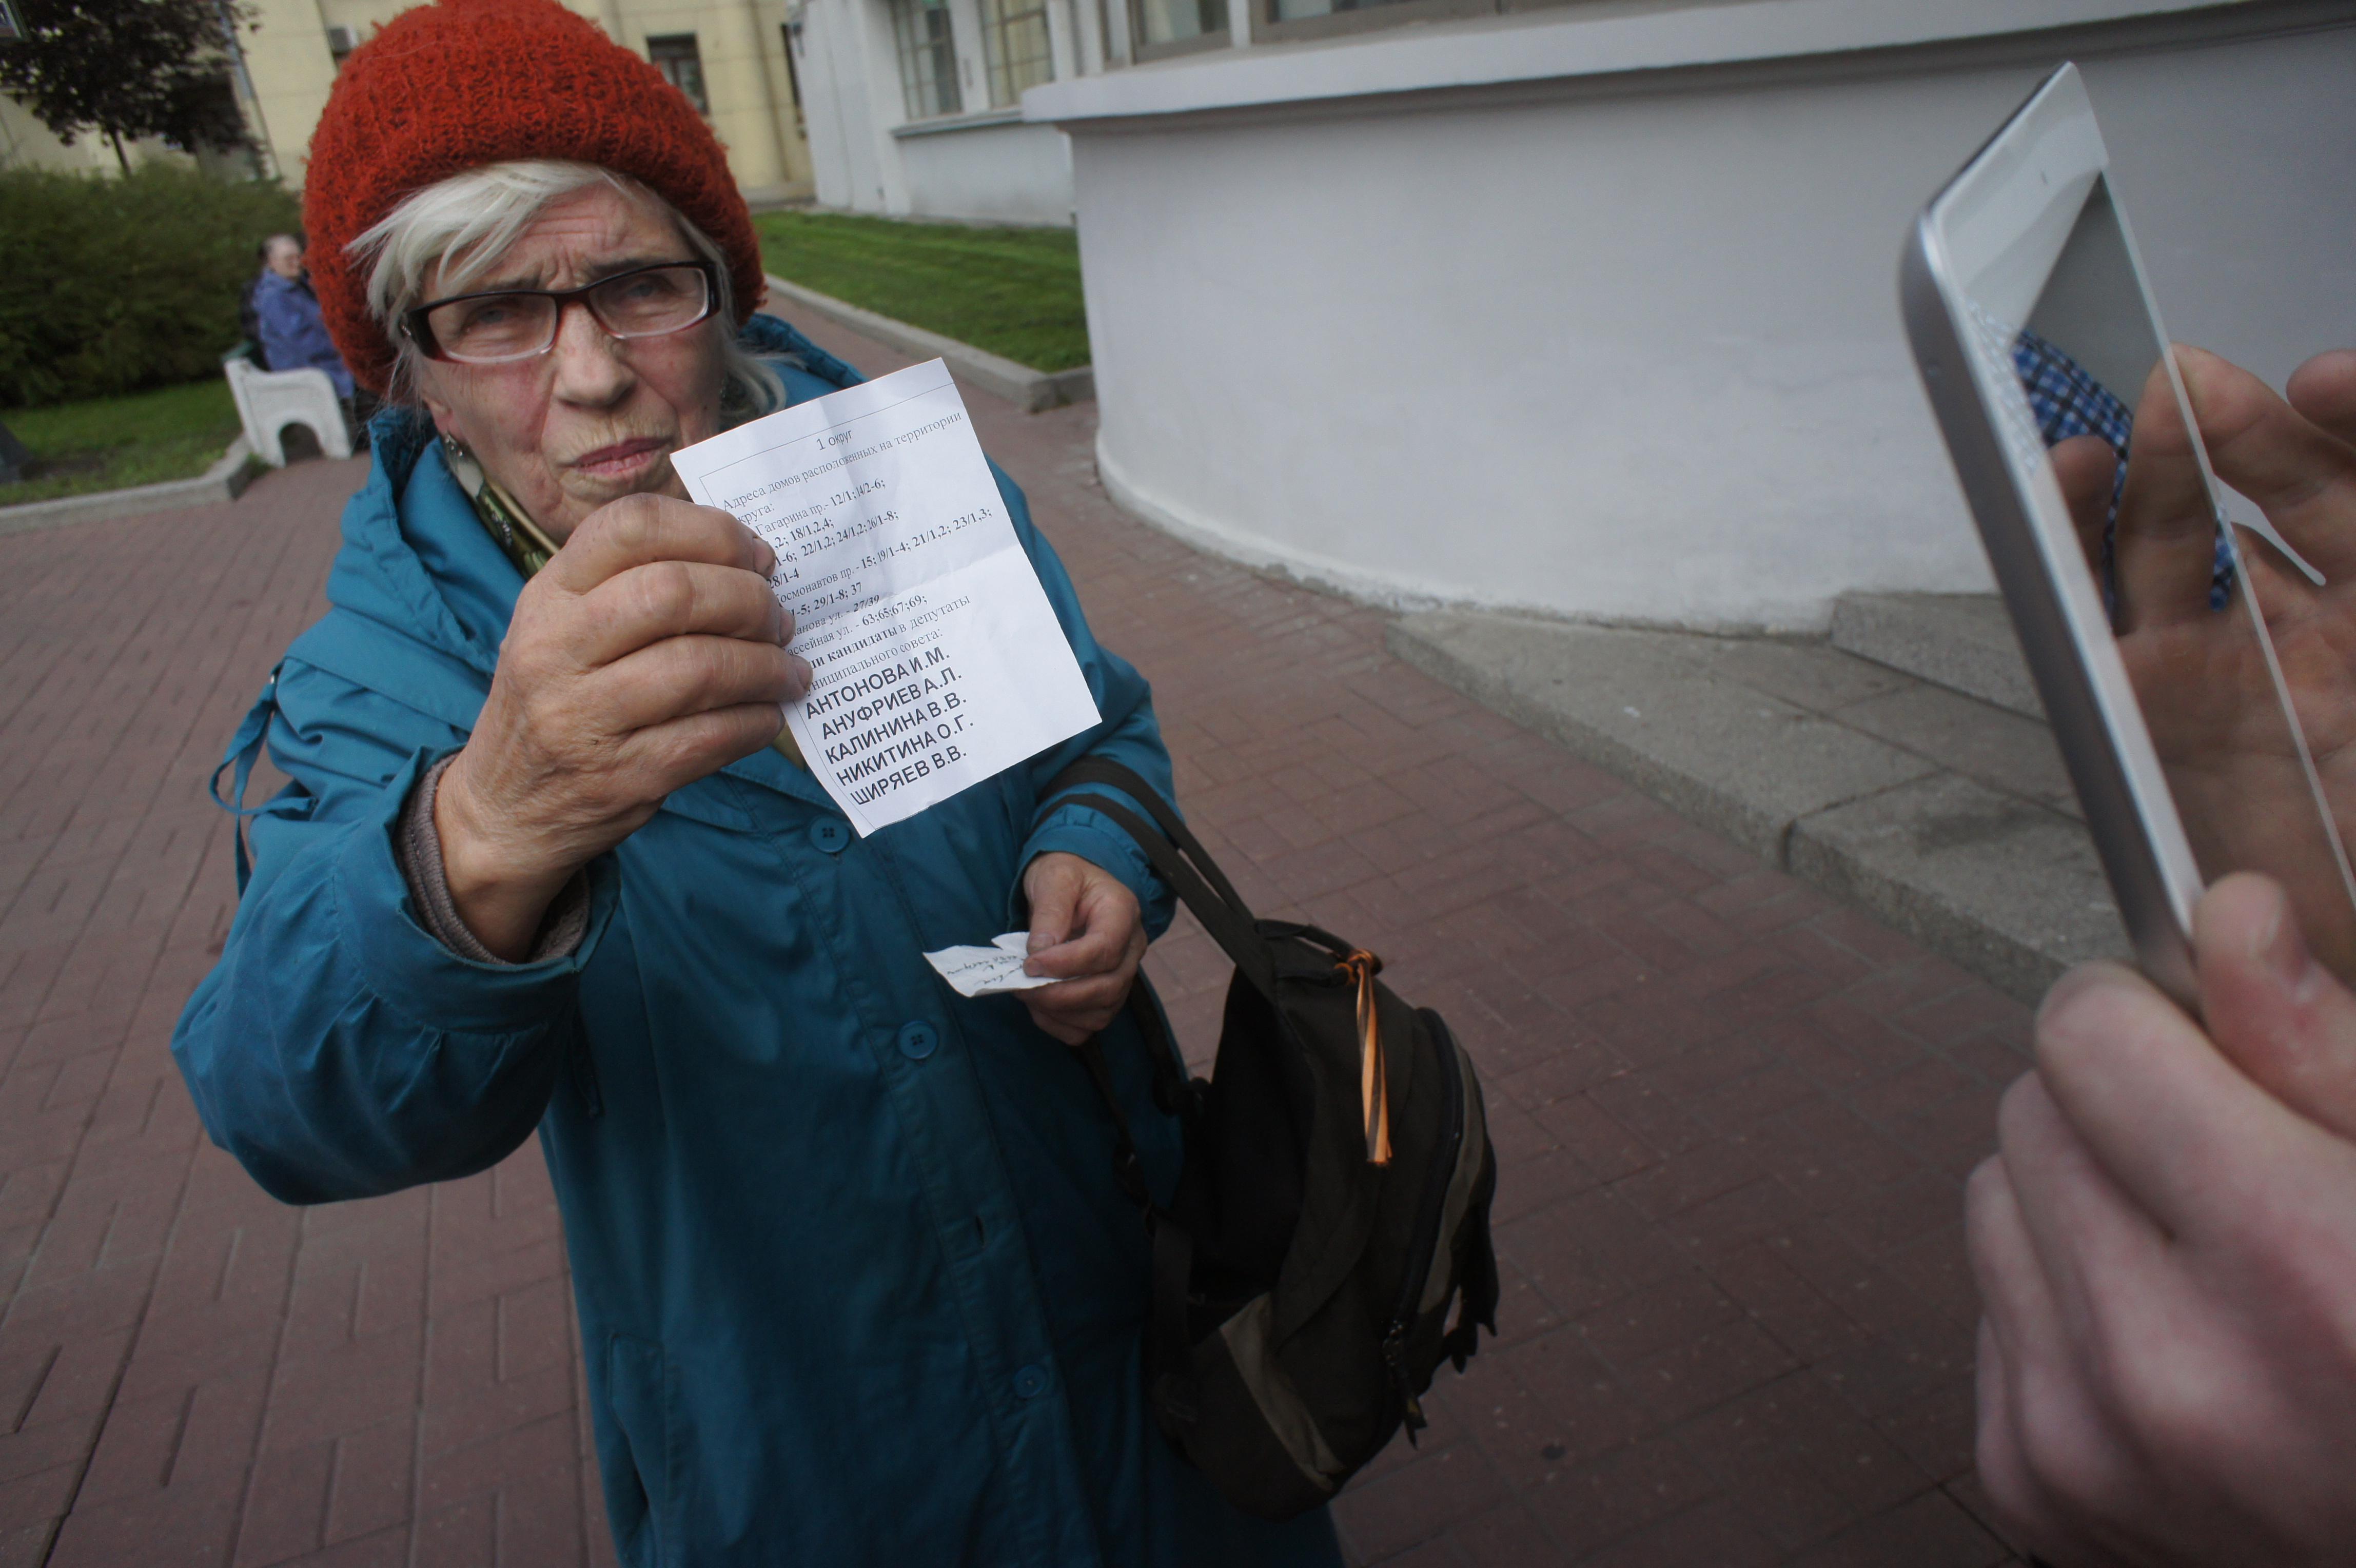 1 округ
Адреса домов расположенных на территории
округа:
Гагарина пр.- 12/1; 14/2-6;
,2; 18/1,2,4;
1-6; 22/1,2; 24/1,2; 26/1-8;
28/1-4
Космонавтов пр. - 15; 19/1-4; 21/1,2; 23/1,3;
1-5; 29/1-8; 37
ул. - 27/39
ул. - 63;65;67;69;
кандидаты в депутаты
муниципального совета:
АНТОНОВА И.М.
АНУФРИЕВ А.Л.
КАЛИНИНА В.В.
НИКИТИНА О.Г.
ШИРЯЕВ В.В.